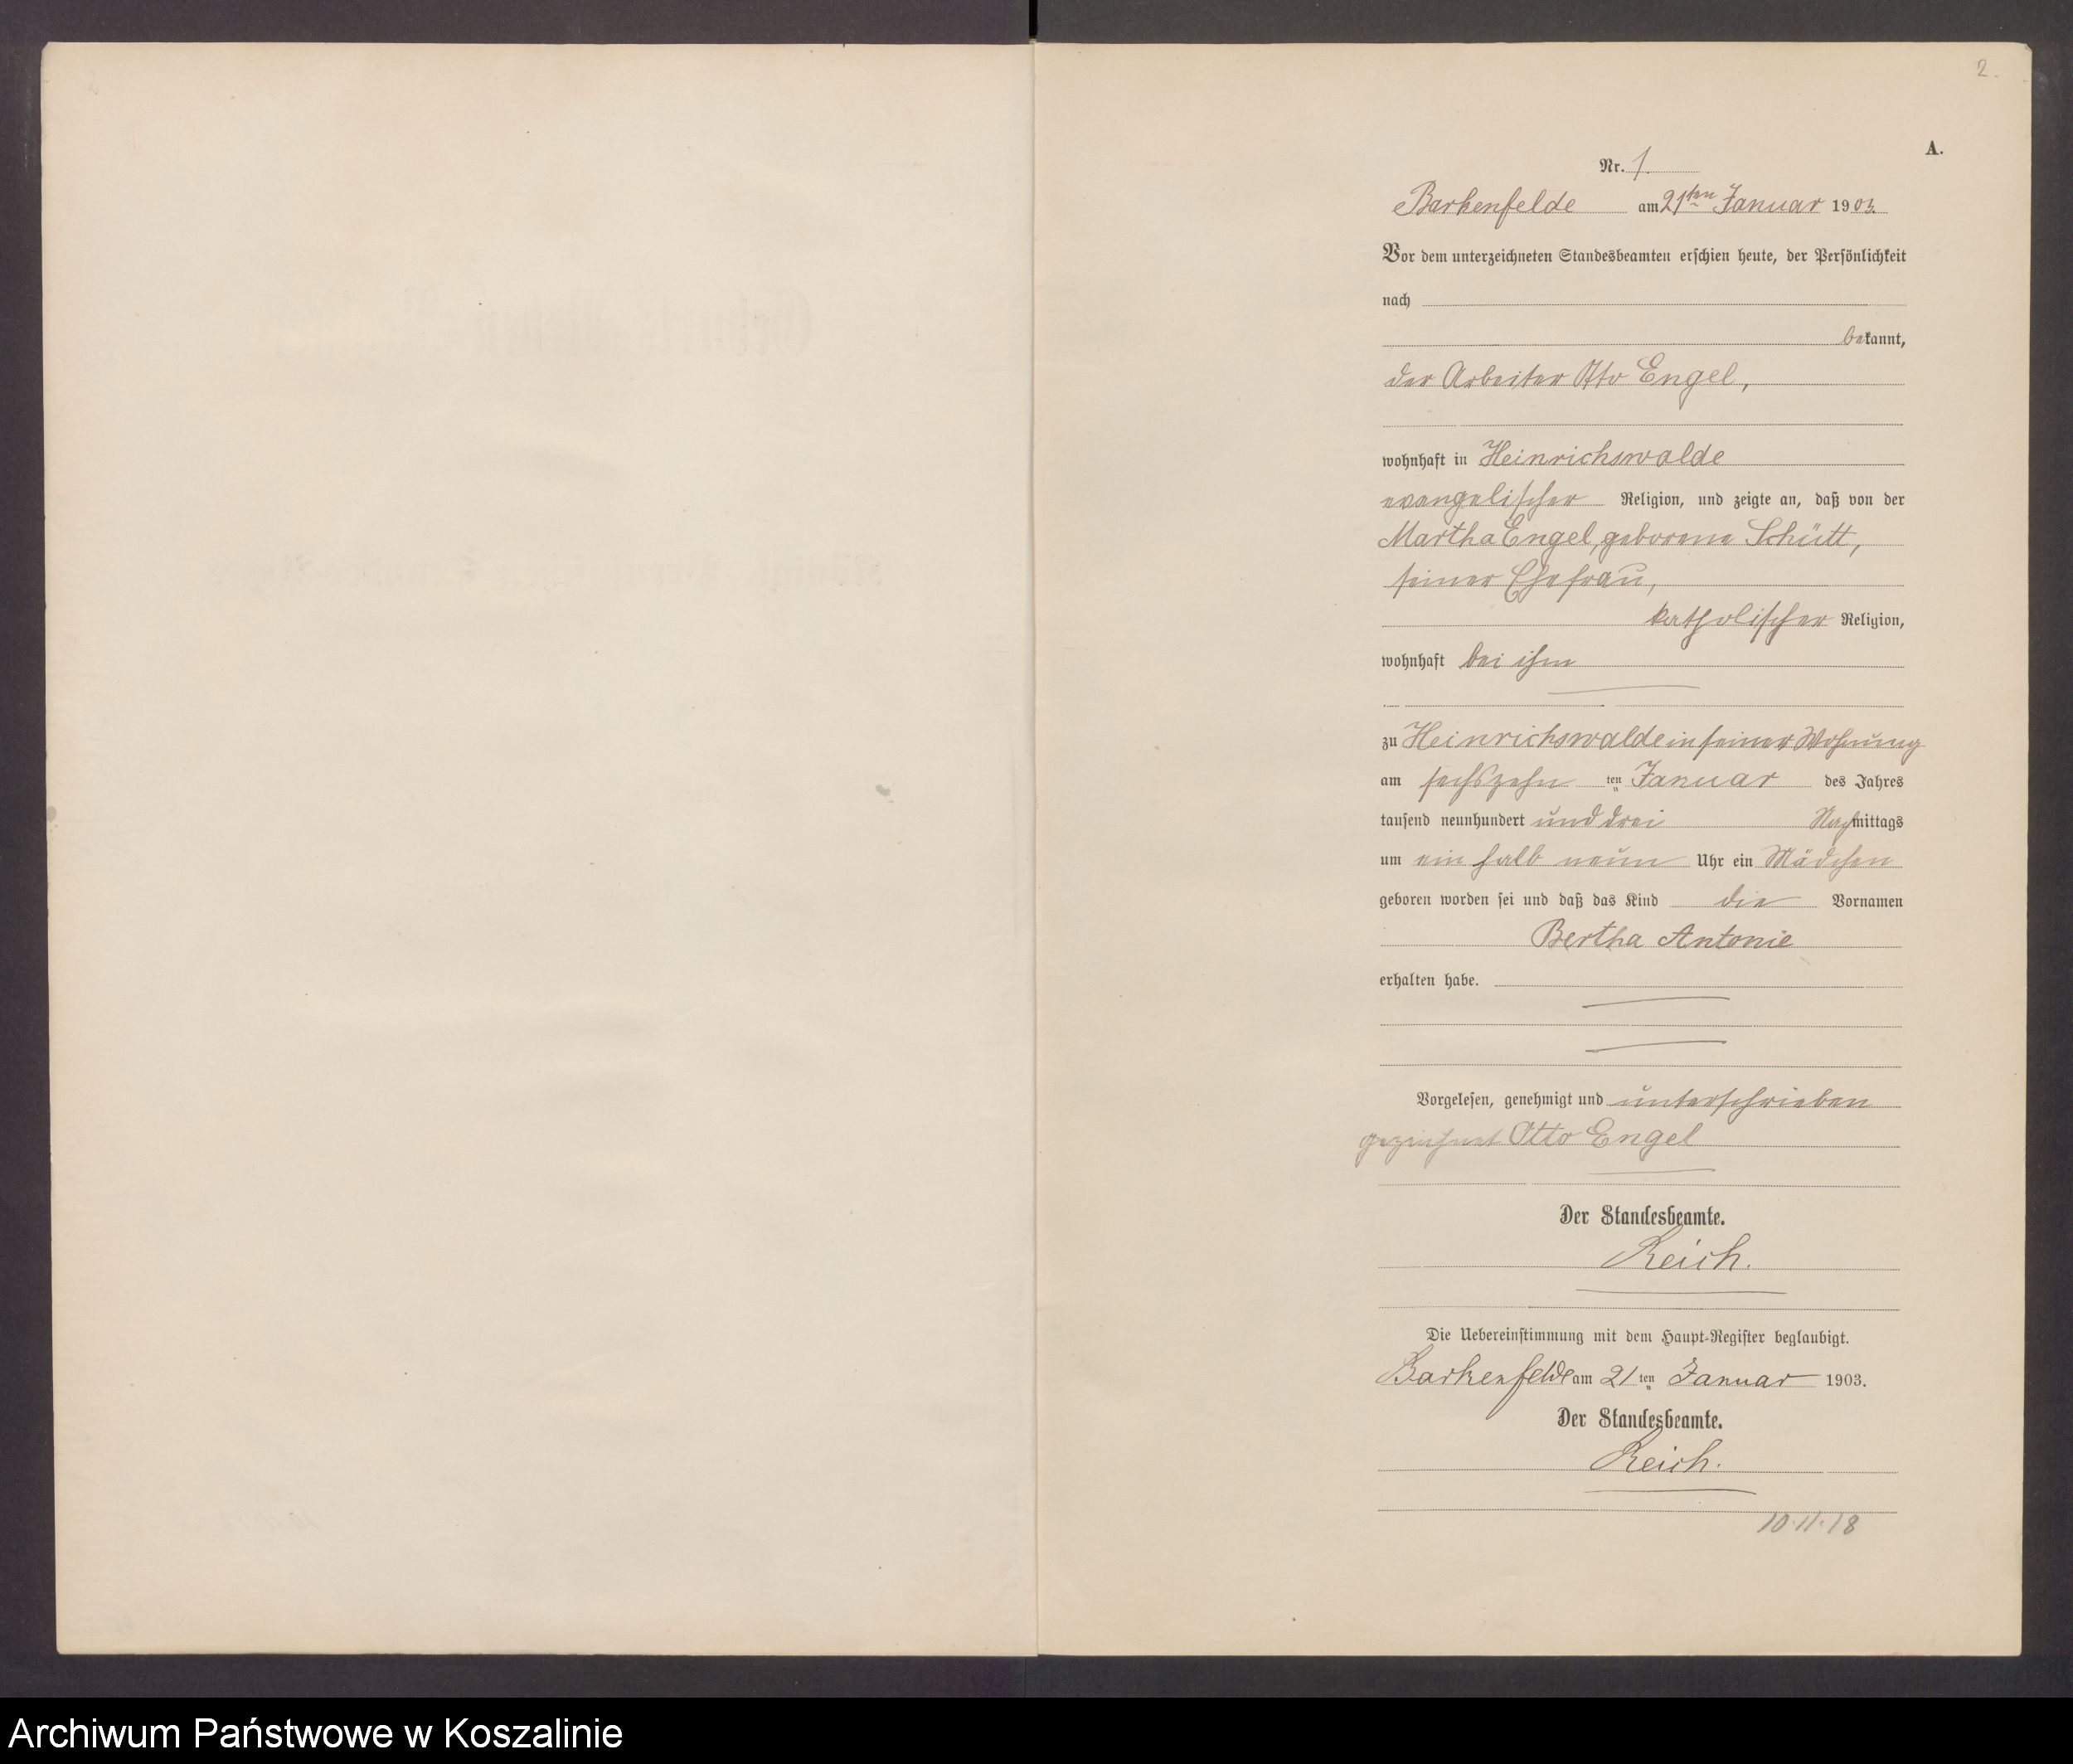 2.
A.
Nr. 1.
Barkenfelde am 21ten Januar 1903
Vor dem unterzeichneten Standesbeamten erschien heute, der Persönlichkeit
nach
bekannt,
der Arbeiter Otto Engel,
wohnhaft in Heinrichswalde
evangelischer Religion, und zeigte an, daß von der
Martha Engel, geborene Schütt,
seiner Ehefrau,
katholischer Religion,
wohnhaft bei ihm
zu Heinrichswalde in seiner Wohnung
am sechszehn ten Januar des Jahres
tausend neunhundert und drei Nachmittags
um ein halb neun Uhr ein Mädchen
geboren worden sei und daß das Kind die Vornamen
Bertha Antonie
erhalten habe.
Vorgelesen, genehmigt und unterschrieben
gezeichnet Otto Engel
Der Standesbeamte.
Reich.
Die Uebereinstimmung mit dem Haupt-Register beglaubigt.
Barkenfelde am 21 ten Januar 1903.
Der Standesbeamte.
Reich.
10.11.18
Archiwum Państwowe w Koszalinie